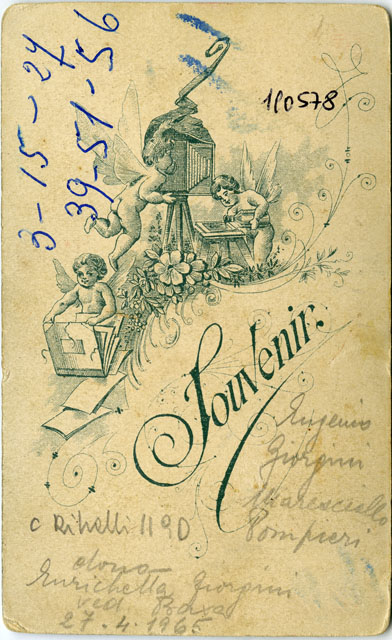 3-15-27
39-51-56
110578
Souvenir.
Eugenio
Giorgini
Maresciallo
Pompieri
C Rihelli 119D
dona
Enrichetta Giorgini
ved Bava
27.4.1965